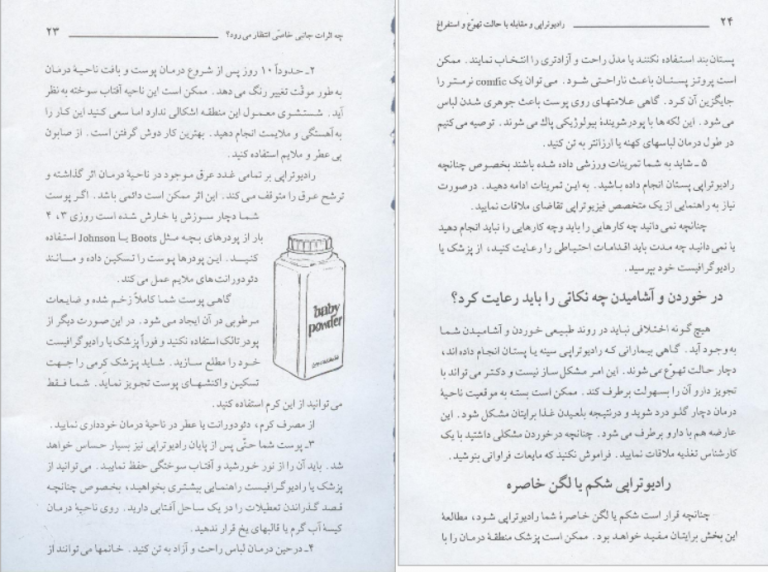 چه اثرات جانبی خاصّی انتظار می‌رود؟ ۲۳
۲ـ حدوداً ۱۰ روز پس از شروع درمان پوست و بافت ناحیهٔ درمان
به طور موقّت تغییر رنگ می دهد. ممکن است این ناحیه آفتاب سوخته به نظر
آید. شستشوی معمول این منطقه اشکالی ندارد اما سعی کنید این کار را
به آهستگی و ملایمت انجام دهید. بهترین کار دوش گرفتن است. از صابون
بی عطر و ملایم استفاده کنید.
رادیوتراپی بر تمامی غدد عرق موجود در ناحیهٔ درمان اثر گذاشته و
ترشح عرق را متوقف می کند. این اثر ممکن است دائمی باشد. اگر پوست
شما دچار سوزش یا خارش شده است روزی ۳، ۴
بار از پودرهای بچه مثل Boots یا Johnson استفاده
کنید. این پودرها پوست را تسکین داده و مانند
دئودورانت‌های ملایم عمل می کند.
گاهی پوست شما کاملاً زخم شده و ضایعات
مرطوبی در آن ایجاد می شود. در این صورت دیگر از
پودر تالک استفاده نکنید و فوراً پزشک یا رادیوگرافیست
خود را مطلع سازید. شاید پزشک کرمی را جهت
تسکین واکنشهای پوست تجویز نماید. شما فقط
می توانید از این کرم استفاده کنید.
baby
powder
از مصرف کرم، دئودورانت یا عطر در ناحیهٔ درمان خودداری نمایید.
۳ـ پوست شما حتّی پس از پایان رادیوتراپی نیز بسیار حساس خواهد
شد. باید آن را از نور خورشید و آفتاب سوختگی حفظ نمایید. می توانید از
پزشک یا رادیوگرافیست راهنمایی بیشتری بخواهید، بخصوص چنانچه
قصد گذراندن تعطیلات را در یک ساحل آفتابی دارید. روی ناحیهٔ درمان
کیسهٔ آب گرم یا قالبهای یخ قرار ندهید.
۴ـ درحین درمان لباس راحت و آزاد به تن کنید. خانمها می توانند از
۲۴ رادیوتراپی و مقابله با حالت تهوّع و استفراغ
پستان بند استفاده نکنند یا مدل راحت و آزادتری را انتخاب نمایند. ممکن
است پروتز پستان باعث ناراحتی شود. می توان یک comfic نرمتر را
جایگزین آن کرد. گاهی علامتهای روی پوست باعث جوهری شدن لباس
می شود. این لکه ها با پودرشویندهٔ بیولوژیکی پاک می شوند. توصیه می کنیم
در طول درمان لباسهای کهنه یا ارزانتر به تن کنید.
۵ ـ شاید به شما تمرینات ورزشی داده شده باشند بخصوص چنانچه
رادیوتراپی پستان انجام داده باشید. به این تمرینات ادامه دهید. درصورت
نیاز به راهنمایی از یک متخصص فیزیوتراپی تقاضای ملاقات نمایید.
چنانچه نمی دانید چه کارهایی را باید وچه کارهایی را نباید انجام دهید
یا نمی دانید چه مدت باید اقدامات احتیاطی را رعایت کنید، از پزشک یا
رادیوگرافیست خود بپرسید.
در خوردن و آشامیدن چه نکاتی را باید رعایت کرد؟
هیچ گونه اختلافی نباید در روند طبیعی خوردن و آشامیدن شما
به وجود آید. گاهی بیمارانی که رادیوتراپی سینه یا پستان انجام داده اند،
دچار حالت تهوّع می شوند. این امر مشکل ساز نیست و دکتر می تواند با
تجویز دارو آن را بسهولت برطرف کند. ممکن است بسته به موقعیت ناحیهٔ
درمان دچار گلو درد شوید و درنتیجه بلعیدن غذا برایتان مشکل شود. این
عارضه هم با دارو برطرف می شود. چنانچه درخوردن مشکلی داشتید با یک
کارشناس تغذیه ملاقات نمایید. فراموش نکنید که مایعات فراوانی بنوشید.
رادیوتراپی شکم یا لگن خاصره
چنانچه قرار است شکم یا لگن خاصرهٔ شما رادیوتراپی شود، مطالعهٔ
این بخش برایتان مفید خواهد بود. ممکن است پزشک منطقهٔ درمان را با